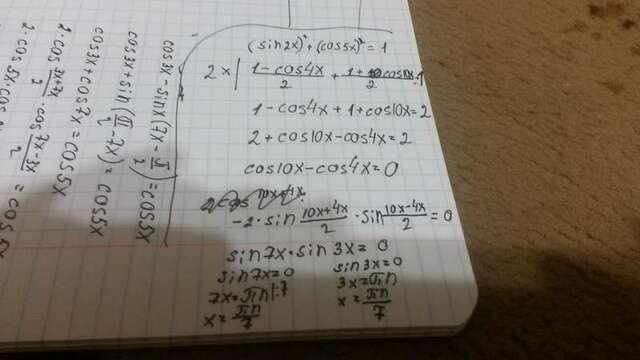 (sin2x)²+(cos5x)²=1
2× | 1-cos4x/2 + 1+cos10x/2 = 1
1-cos4x+1+cos10x=2
2+cos10x-cos4x=2
cos10x-cos4x=0
-2·sin 10x+4x/2 · sin 10x-4x/2 = 0
sin7x·sin3x=0
sin7x=0 sin3x=0
7x=πn |:7 3x=πn
x=πn/7 x=πn/7
cos3x-sin(7x-π/2)=cos5x
cos3x+sin(π/2-7x)=cos5x
cos3x+cos7x=cos5x
2·cos 3x+7x/2 · cos 7x-3x/2 =
2·cos5x·cos